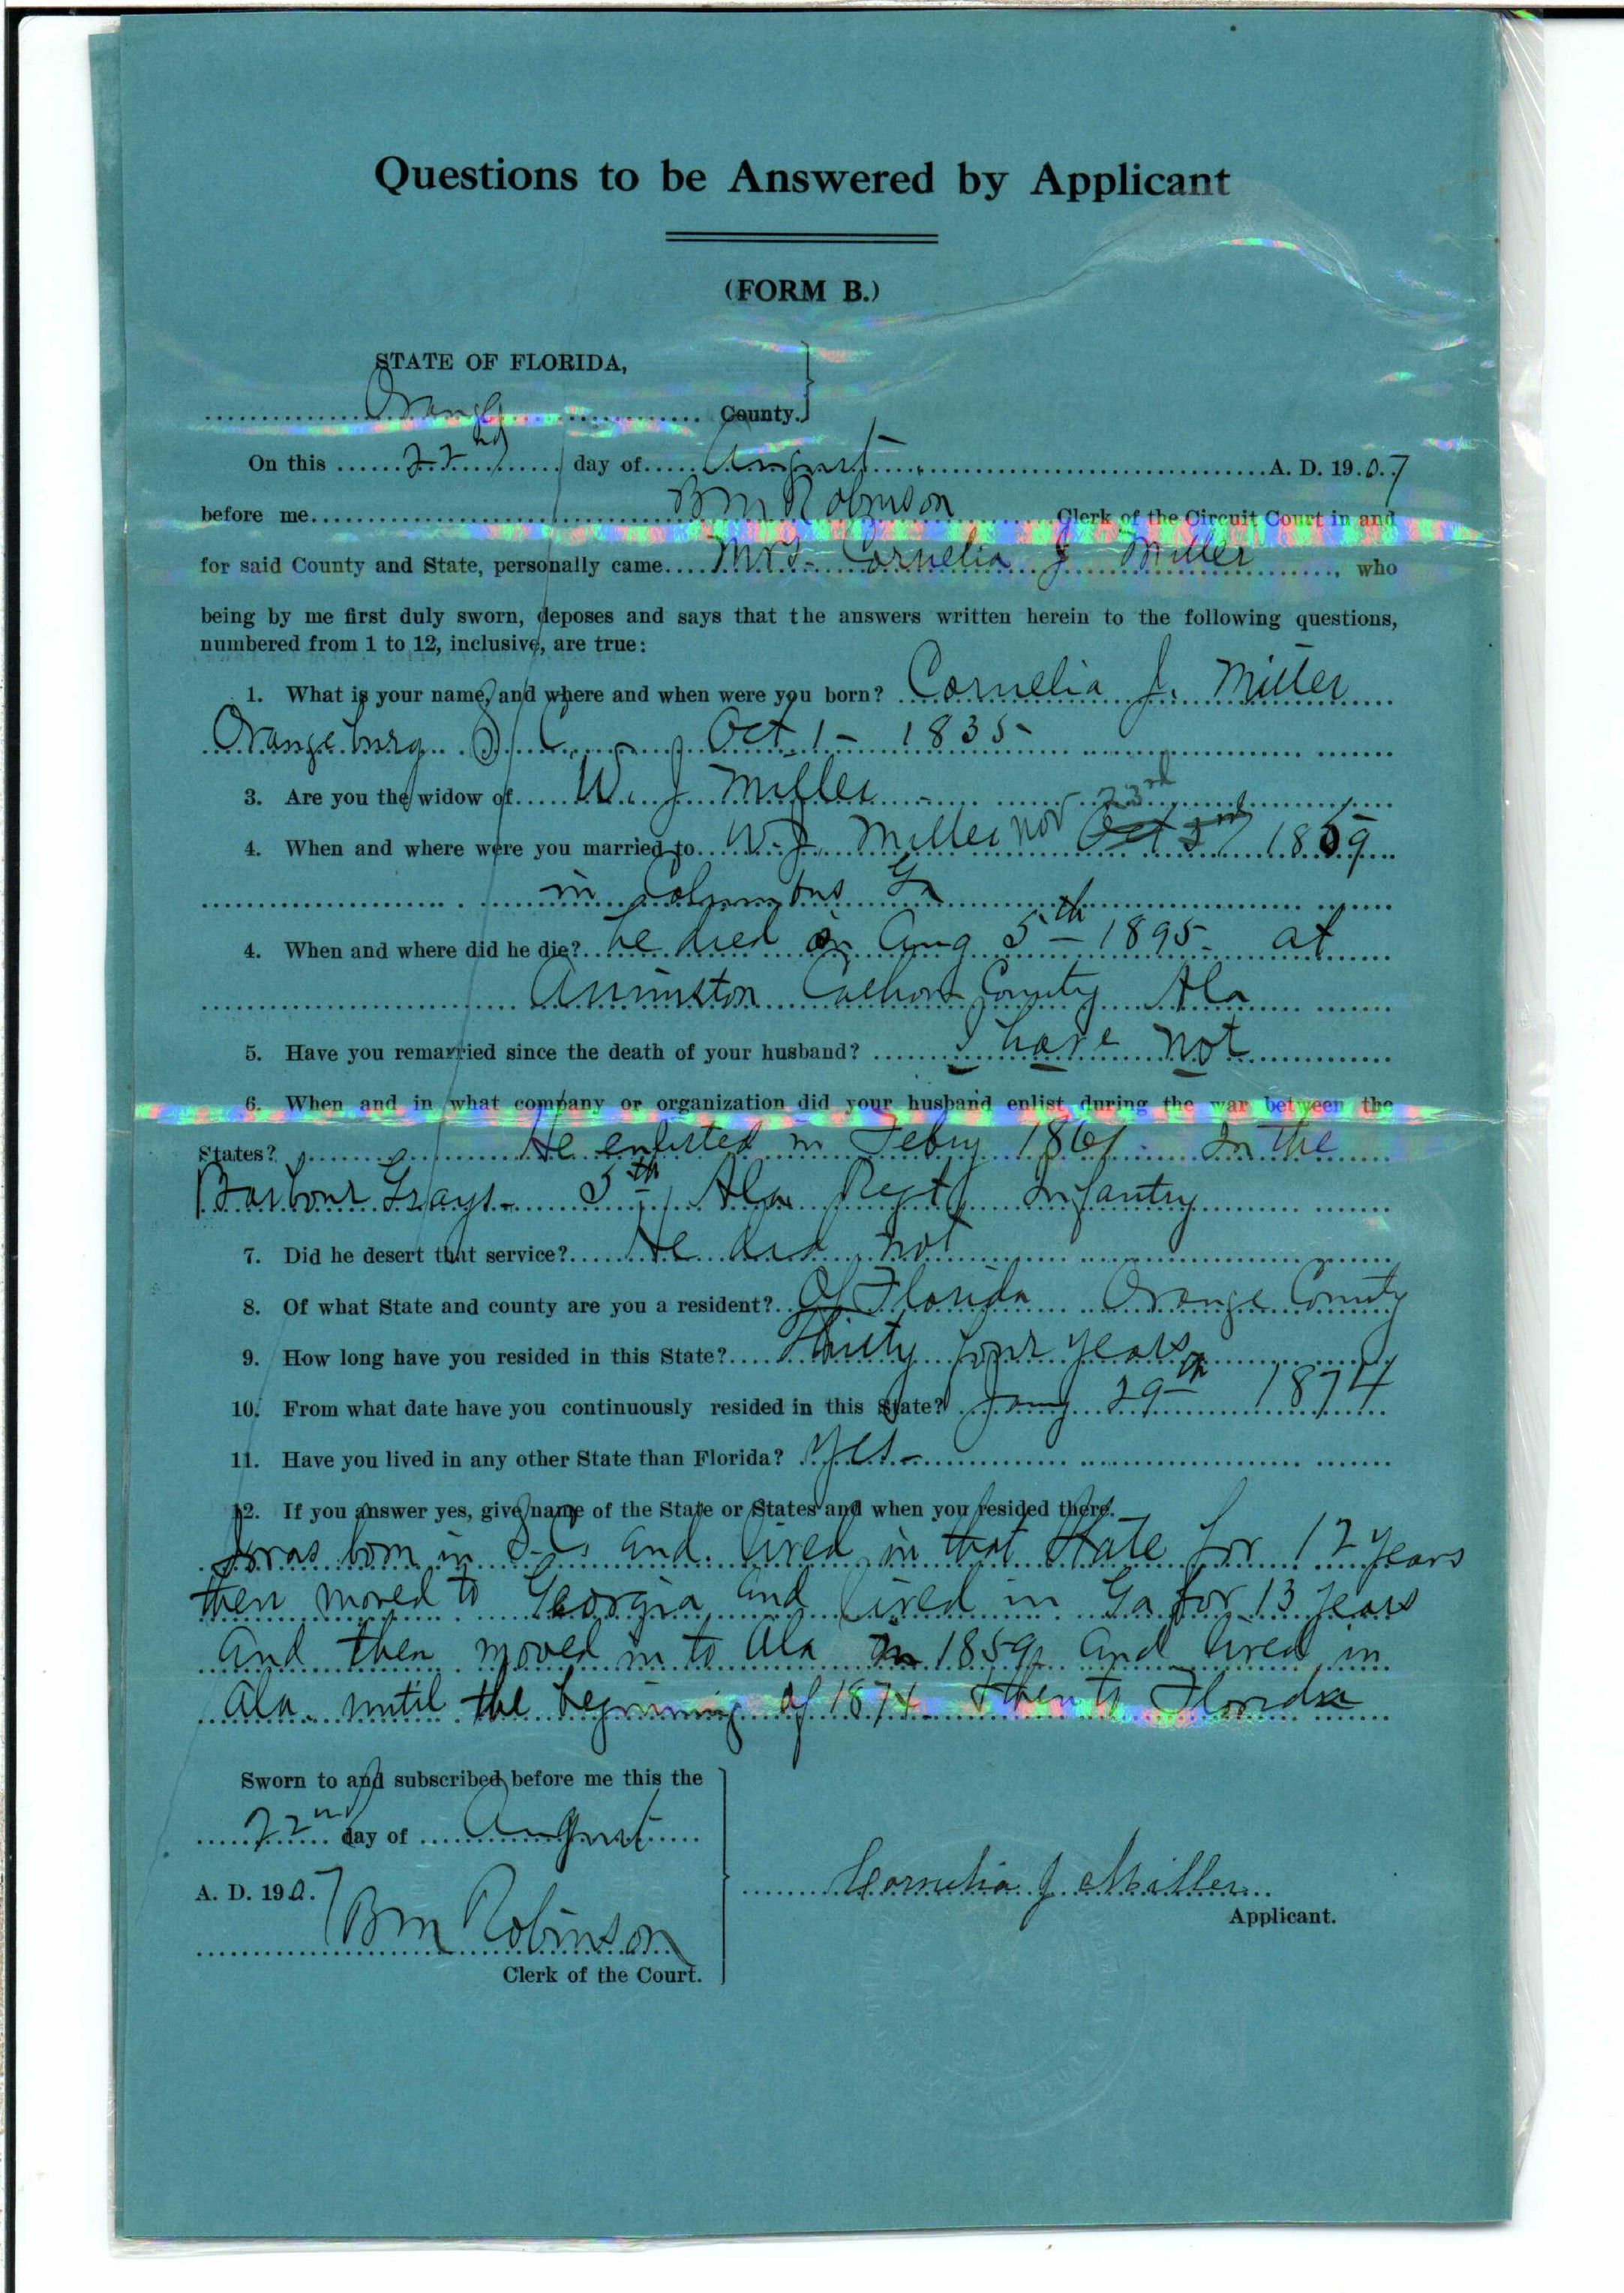 Questions to be Answered by Applicant
(FORM B.)
STATE OF FLORIDA,
Orange County.
On this 22nd day of August A. D. 1907
before me BM Robinson Clerk of the Circuit Court in and
for said County and State, personally came Mrs. Cornelia J Miller, who
being by me first duly sworn, deposes and says that the answers written herein to the following questions,
numbered from 1 to 12, inclusive, are true:
1. What is your name, and where and when were you born? Cornelia J. Miller
Orangeburg S. C. Oct. 1 - 1835
3. Are you the widow of W. J Miller
4. When and where were you married to W. J. Miller Nov 23rd 1859
in Columbus Ga
4. When and where did he die? he died on Aug 5th 1895. at
Anniston Calhoun County Ala
5. Have you remarried since the death of your husband? I have not
6. When and in what company or organization did your husband enlist during the war between the
States? He enlisted in Febuy 1861. In the
Barbour Grays - 5th Ala Regt Infantry
7. Did he desert that service? He did not
8. Of what State and county are you a resident? Of Florida Orange County
9. How long have you resided in this State? Thirty four years
10. From what date have you continuously resided in this State? Jany 29th 1874
11. Have you lived in any other State than Florida? Yes -
12. If you answer yes, give name of the State or States and when you resided there.
I was born in S. C. and lived in that State for 12 years
then moved to Georgia and lived in Ga for 13 years
and then moved in to Ala in 1859 and lived in
Ala. until the beginning of 1874 then to Florida
Sworn to and subscribed before me this the
22nd day of August
A. D. 1907
BM Robinson
Clerk of the Court.
Cornelia J Miller
Applicant.